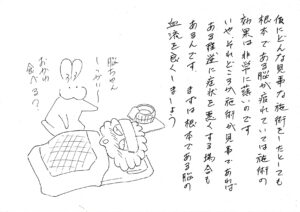 仮にどんな見事な施術をしたとしても
根本である脳が疲れていては施術の
効果は非常に薄いのです
いや、それどころか施術が見事であれば
ある程逆に症状を悪くする場合も
あるんです まずは根本である脳の
血流を良くしましょう
脳ちゃん
しっかりー
おかゆ
食べる?